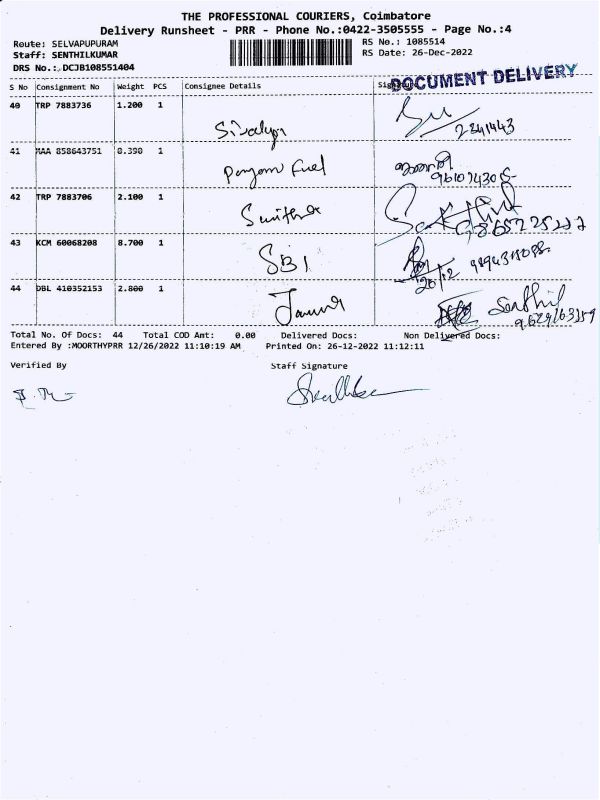 THE PROFESSIONAL COURIERS, Coimbatore
Delivery Runsheet - PRR - Phone No.:0422-3505555 - Page No.:4
Route: SELVAPUPURAM RS No.: 1085514
Staff: SENTHILKUMAR RS Date: 26-Dec-2022
DRS No.: DCJB108551404
DOCUMENT DELIVERY
S No Consignment No Weight PCS Consignee Details
40 TRP 7883736 1.200 1
2241443
41 MAA 858643751 0.390 1 Fuel
42 TRP 7883706 2.100 1
43 KCM 60068208 8.700 1 SBI
20/12
44 DBL 410352153 2.800 1 Senthil
Total No. Of Docs: 44 Total COD Amt: 0.00 Delivered Docs: Non Delivered Docs:
Entered By :MOORTHYPRR 12/26/2022 11:10:19 AM Printed On: 26-12-2022 11:12:11
Verified By Staff Signature